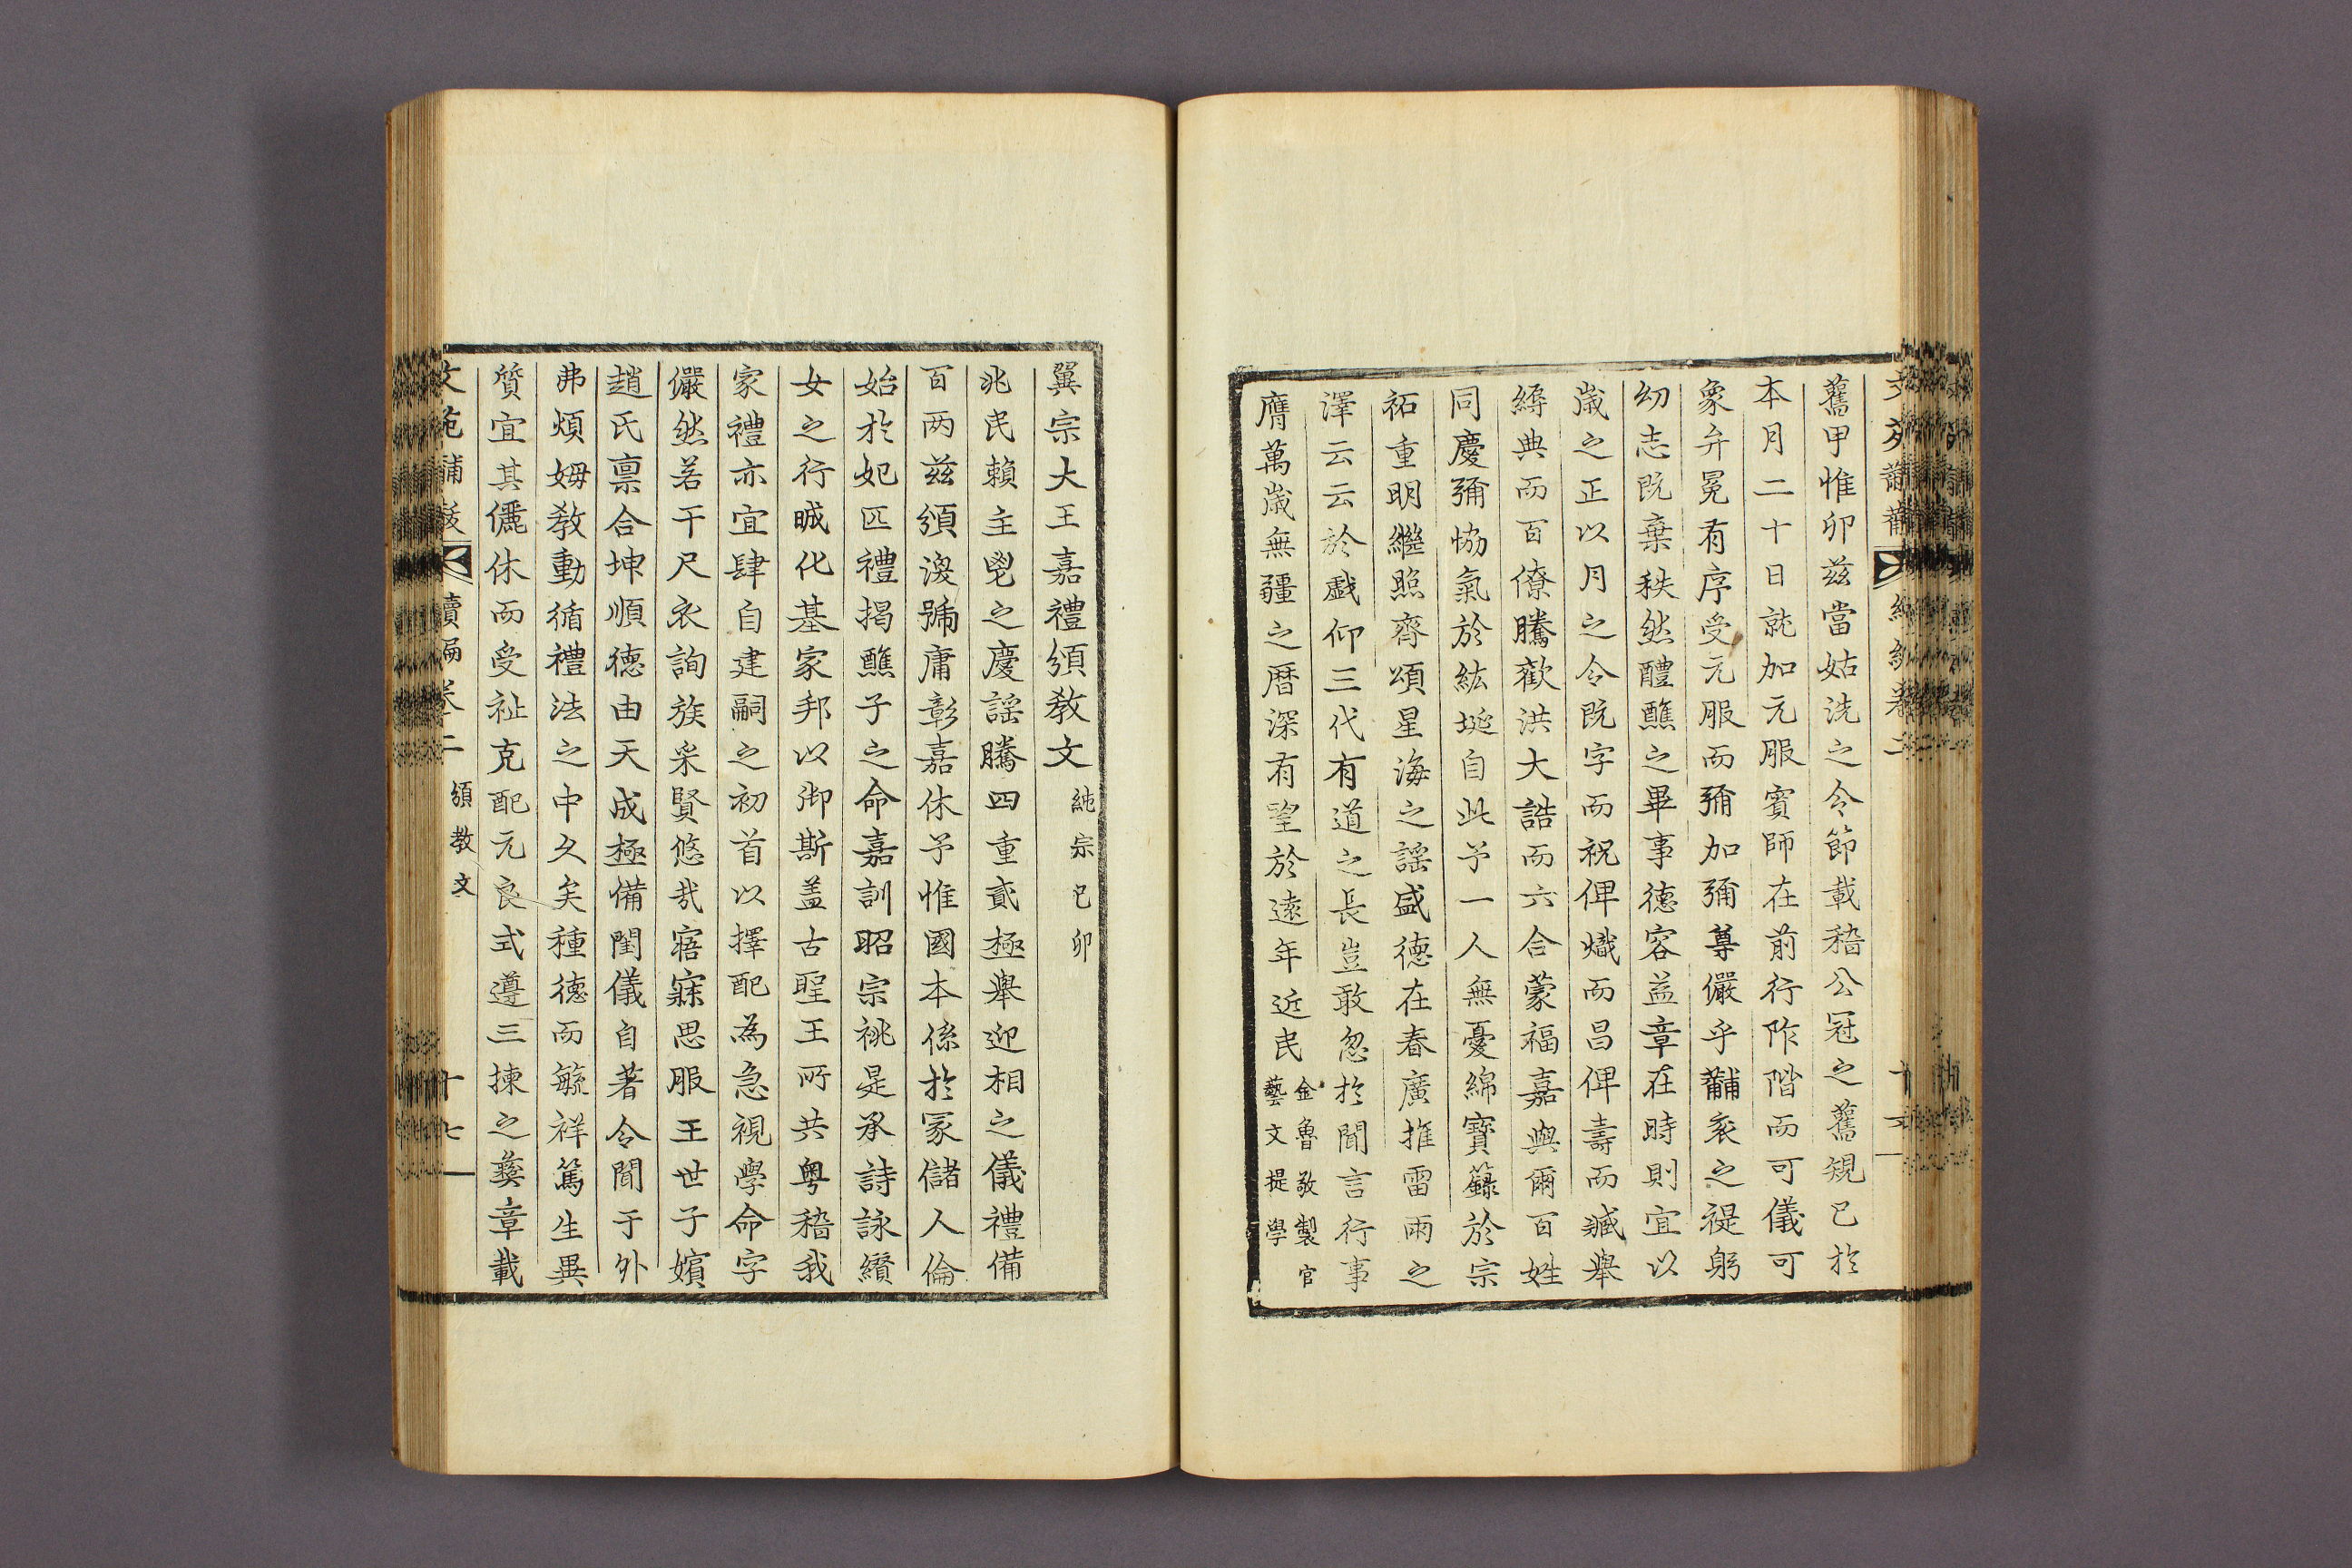 舊甲惟卯茲當姑洗之令節載稽公冠之舊規已於
本月二十日就加元服賓師在前行阼階而可儀可
象弁冕有序受元服而彌加彌尊儼乎黼衮之禔躬
幼志既棄秩然醴醮之畢事德容益章在時則宜以
歲之正以月之令既字而祝俾熾而昌俾壽而臧舉
縟典而百僚騰歡洪大誥而六合蒙福嘉與爾百姓
同慶彌協氣於紘埏自此予一人無憂綿寶籙於宗
祏重明繼照齊頌星海之謠盛德在春廣推雷雨之
澤云云於戱仰三代有道之長豈敢忽於聞言行事
膺萬歲無疆之曆深有望於遠年近民
金魯敬製官
藝文提學
翼宗大王嘉禮頒教文 純宗己卯
兆民賴主鬯之慶謠騰四重貳極舉迎相之儀禮備
百兩玆頒渙號庸彰嘉休予惟國本係於冢儲人倫
始於妃匹禮揭醮子之命嘉訓昭宗祧是承詩詠纘
女之行晠化基家邦以御斯盖古聖王所共粤稽我
家禮亦宜肆自建嗣之初首以擇配為急視學命字
儼然若干尺衣詢族采賢悠哉寤寐思服王世子嬪
趙氏禀合坤順德由天成極備閨儀自著令聞于外
弗煩姆教動循禮法之中久矣種德而毓祥篤生異
質宜其儷休而受祉克配元良式遵三揀之彜章載
文苑黼黻 續編卷二 頒教文 十七